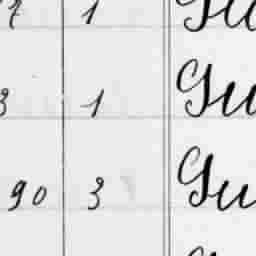 7 1 Gu
3 1 Gu
90 3 Gu